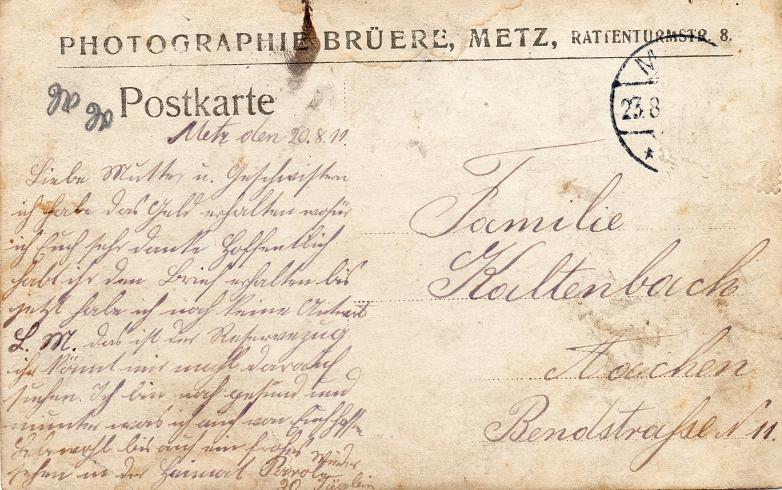 PHOTOGRAPHIE BRÜERE, METZ, RATTENTURMSTR. 8.
Postkarte
M
23.8
Metz den 20.8.11.
Liebe Mutter u. Geschwistern
ich habe das Geld erhalten wofür
ich Euch sehr danke Hoffentlich
habt ihr den Brief erhalten bis
jetzt habe ich noch keine Antwort
L. M. das ist der Reservezug
ihr könnt mir mahl darauf
suchen. Ich bin noch gesund und
munter was ich auch von Euch hoffe
Lebewohl bis auf ein frohes Wieder
sehen in der Heimat Parole
30
Familie
Kaltenbach
Aachen
Bendstraße N 11.